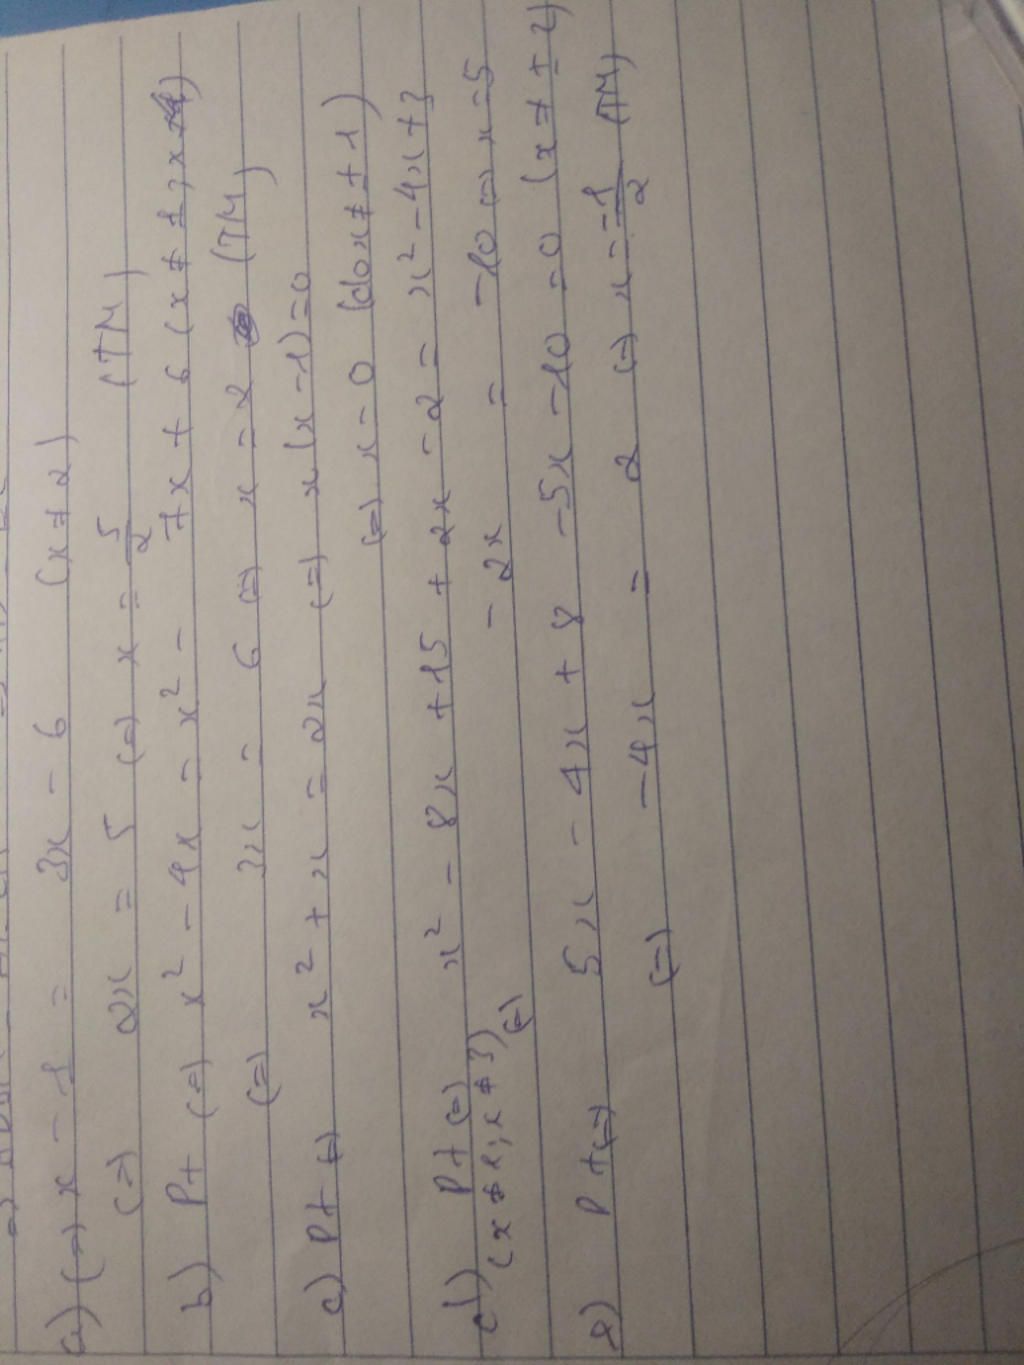 a) (=) x - 1 = 3x - 6 (x ≠ 2)
(=) 2x = 5 (=) x = 5/2 (TM)
b) Pt (=) x² - 4x = x² - 7x + 6 (x ≠ 1; x ≠
(=) 3x = 6 (=) x = 2 (TM)
c) Pt (=) x² + x = 2x (=) x(x - 1) = 0
(=) x = 0 (do x ≠ ± 1)
d) Pt (=) x² - 8x + 15 + 2x - 2 = x² - 4x + 3
(x ≠ 1; x ≠ 3) (=) - 2x = -10 (=) x = 5
e) Pt (=) 5x - 4x + 8 - 5x - 10 = 0 (x ≠ ± 2)
(=) -4x = 2 (=) x = -1/2 (TM)